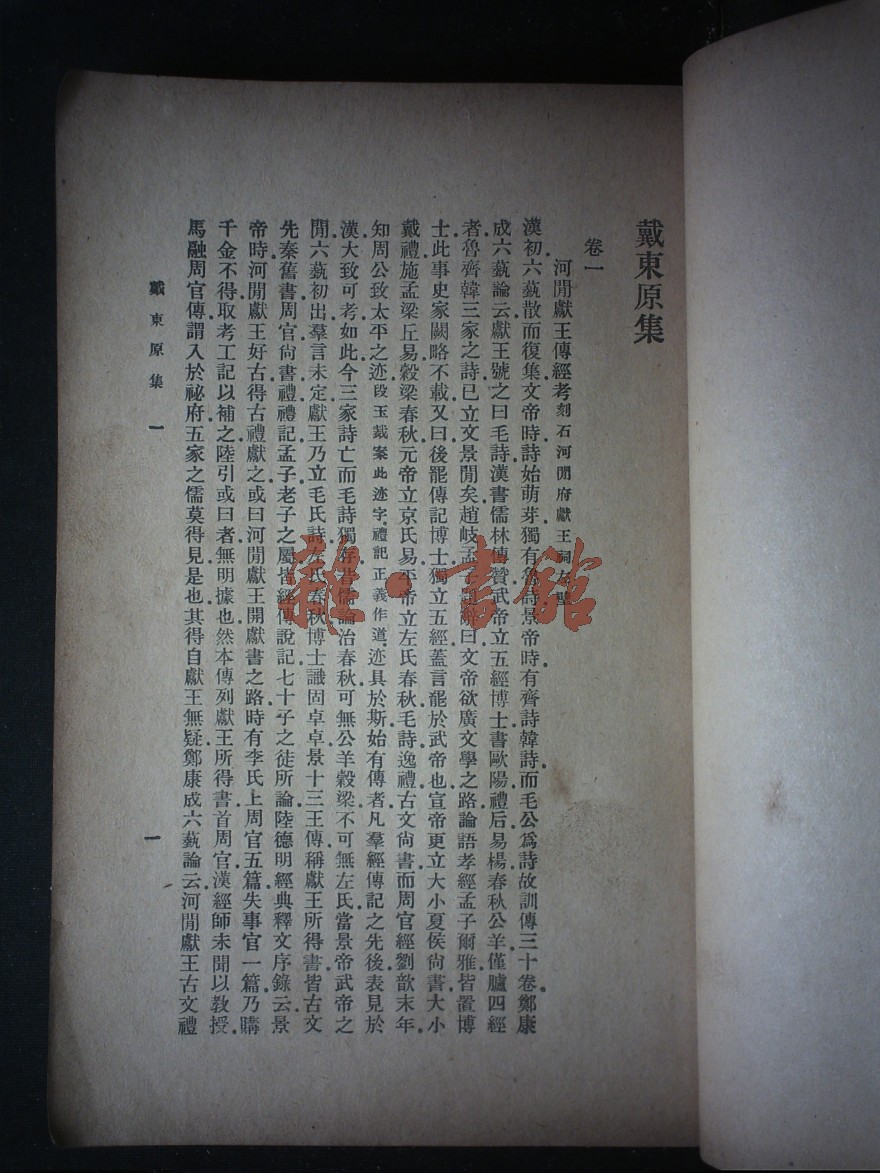 戴東原集
卷一
河閒獻王傳經考刻石河閒府獻王祠左壁
漢初六蓺散而復集文帝時詩始萌芽獨有魯詩景帝時有齊詩韓詩而毛公爲詩故訓傳三十卷鄭康
成六蓺論云獻王號之曰毛詩漢書儒林傳贊武帝立五經博士書歐陽禮后易楊春秋公羊僅臚四經
者魯齊韓三家之詩已立文景閒矣趙岐孟子題辭曰文帝欲廣文學之路論語孝經孟子爾雅皆置博
士此事史家闕略不載又曰後罷傳記博士獨立五經蓋言罷於武帝也宣帝更立大小夏侯尙書大小
戴禮施孟梁丘易穀梁春秋元帝立京氏易平帝立左氏春秋毛詩逸禮古文尙書而周官經劉歆末年
知周公致太平之迹段玉裁案此迹字禮記正義作道迹具於斯始有傳者凡羣經傳記之先後表見於
漢大致可考如此今三家詩亡而毛詩獨存昔儒論治春秋可無公羊穀梁不可無左氏當景帝武帝之
閒六蓺初出羣言未定獻王乃立毛氏詩左氏春秋博士識固卓卓景十三王傳稱獻王所得書皆古文
先秦舊書周官尙書禮禮記孟子老子之屬皆經傳說記七十子之徒所論陸德明經典釋文序錄云景
帝時河閒獻王好古得古禮獻之或曰河閒獻王開獻書之路時有李氏上周官五篇失事官一篇乃購
千金不得取考工記以補之陸引或曰者無明據也然本傳列獻王所得書首周官漢經師未聞以敎授
馬融周官傳謂入於祕府五家之儒莫得見是也其得自獻王無疑鄭康成六蓺論云河閒獻王古文禮
戴東原集 一
一
雜·書館